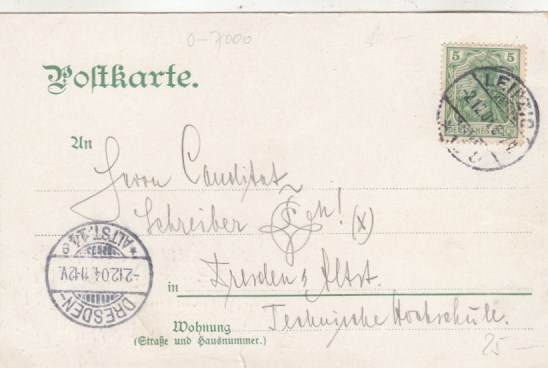 0-7000
Postkarte.
5 5
LEIPZIG
2.12.04
An
Herrn Canditat
Schreiber
(x)
Dresden Altst.
in
Technische Hochschule.
Wohnung
(Straße und Hausnummer.)
DRESDEN-
*ALTST.
-2.12.04.11-12V.
25-